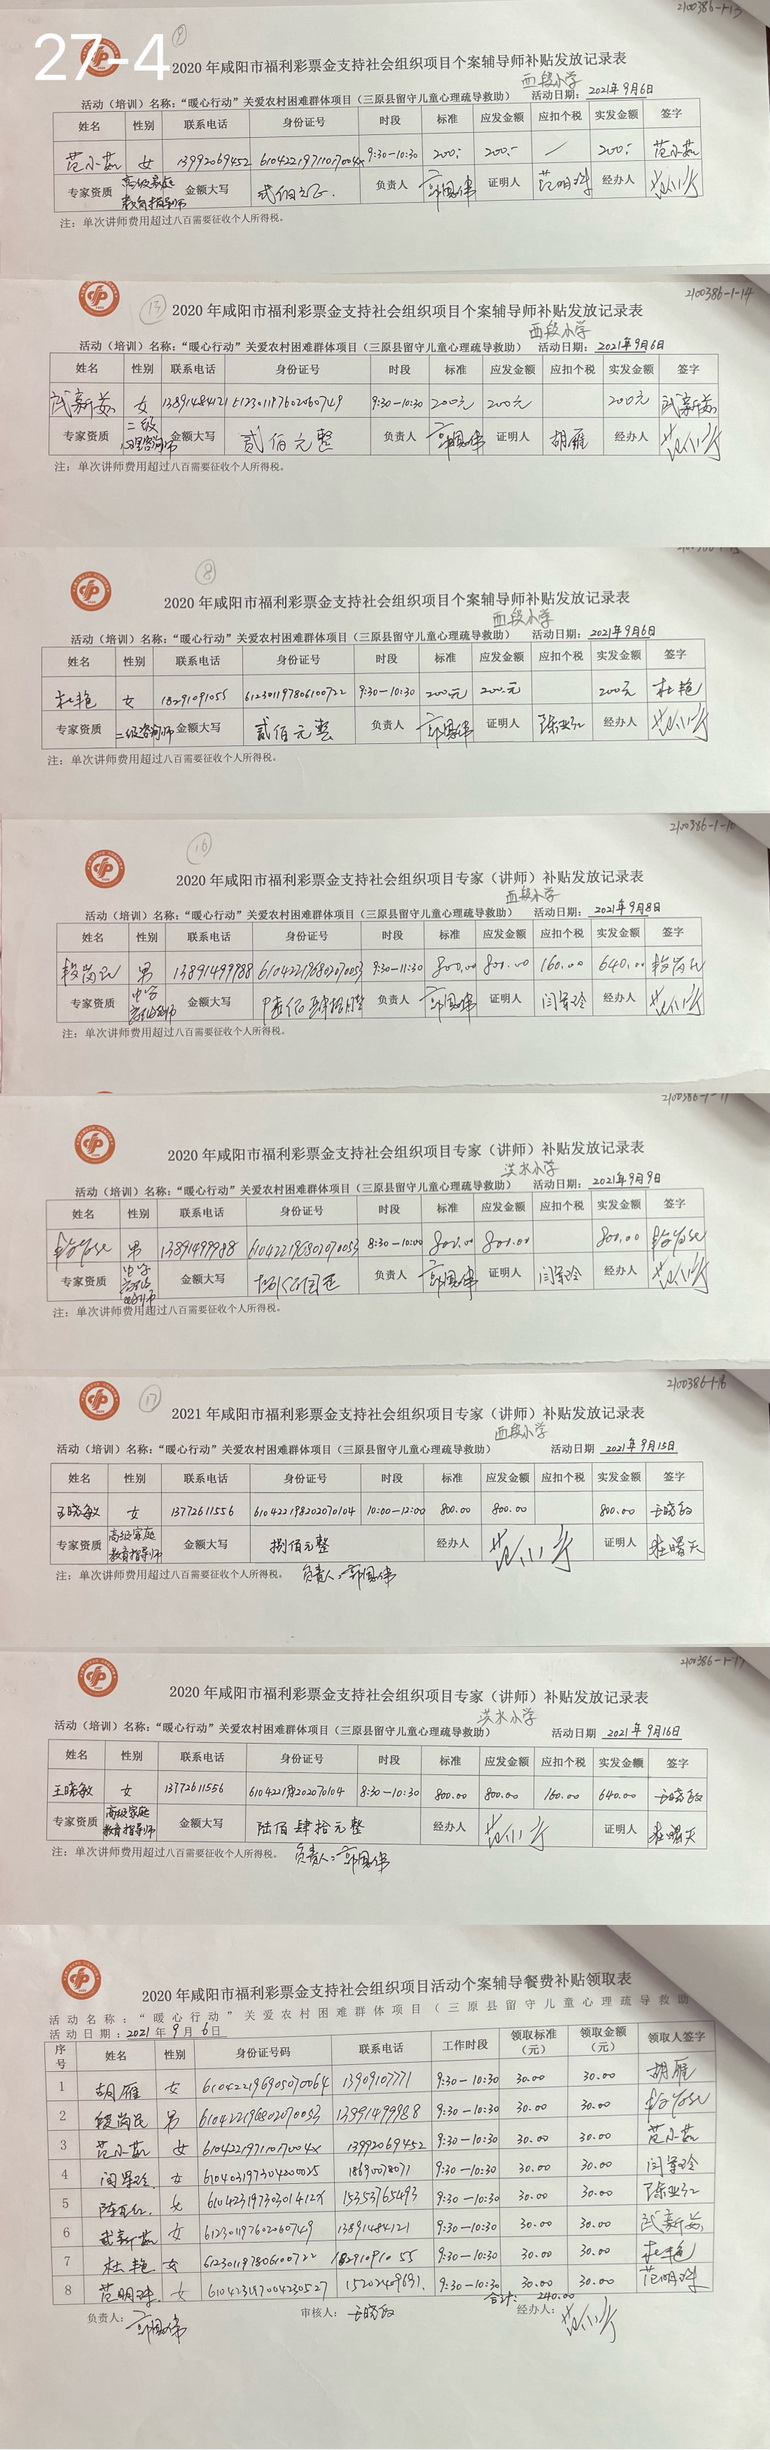 27-4
2100386-1-13
9
2020 年咸阳市福利彩票金支持社会组织项目个案辅导师补贴发放记录表
西段小学
活动（培训）名称：“暖心行动”关爱农村困难群体项目（三原县留守儿童心理疏导救助） 活动日期：2021年9月6日
姓名 性别 联系电话 身份证号 时段 标准 应发金额 应扣个税 实发金额 签字
范小茹 女 13992069452 61042219711017004x 9:30-10:30 200.- 200.- / 200.- 范小茹
专家资质 高级家庭教育指导师 金额大写 贰佰元正. 负责人 郭恩伟 证明人 范明珠 经办人
注：单次讲师费用超过八百需要征收个人所得税。
2100386-1-14
13
2020 年咸阳市福利彩票金支持社会组织项目个案辅导师补贴发放记录表
西段小学
活动（培训）名称：“暖心行动”关爱农村困难群体项目（三原县留守儿童心理疏导救助） 活动日期：2021年9月6日
姓名 性别 联系电话 身份证号 时段 标准 应发金额 应扣个税 实发金额 签字
武新茹 女 13891484121 612301197602060749 9:30-10:30 200元 200元 200元 武新茹
专家资质 二级心理咨询师 金额大写 贰佰元整 负责人 郭恩伟 证明人 胡雁 经办人
注：单次讲师费用超过八百需要征收个人所得税。
8
2020 年咸阳市福利彩票金支持社会组织项目个案辅导师补贴发放记录表
西段小学
活动（培训）名称：“暖心行动”关爱农村困难群体项目（三原县留守儿童心理疏导救助） 活动日期：2021年9月6日
姓名 性别 联系电话 身份证号 时段 标准 应发金额 应扣个税 实发金额 签字
杜艳 女 18291091055 612301197806100722 9:30-10:30 200元 200元 200元 杜艳
专家资质 二级咨询师 金额大写 贰佰元整 负责人 郭恩伟 证明人 陈亚红 经办人
注：单次讲师费用超过八百需要征收个人所得税。
2100386-1-10
16
2020 年咸阳市福利彩票金支持社会组织项目专家（讲师）补贴发放记录表
西段小学
活动（培训）名称：“暖心行动”关爱农村困难群体项目（三原县留守儿童心理疏导救助） 活动日期：2021年9月8日
姓名 性别 联系电话 身份证号 时段 标准 应发金额 应扣个税 实发金额 签字
段岗民 男 13891499988 610422196802070053 9:30-11:30 800.00 800.00 160.00 640.00 段岗民
专家资质 金额大写 陆佰肆拾元整 负责人 郭恩伟 证明人 闫军玲 经办人
注：单次讲师费用超过八百需要征收个人所得税。
2100386-1-11
2020 年咸阳市福利彩票金支持社会组织项目专家（讲师）补贴发放记录表
洪水小学
活动（培训）名称：“暖心行动”关爱农村困难群体项目（三原县留守儿童心理疏导救助） 活动日期：2021年9月9日
姓名 性别 联系电话 身份证号 时段 标准 应发金额 应扣个税 实发金额 签字
段岗民 男 13891499988 610422196802070053 8:30-10:00 800.00 800.00 800.00 段岗民
专家资质 金额大写 负责人 郭恩伟 证明人 闫军玲 经办人
注：单次讲师费用超过八百需要征收个人所得税。
2100386-1-16
17
2021 年咸阳市福利彩票金支持社会组织项目专家（讲师）补贴发放记录表
西段小学
活动（培训）名称：“暖心行动”关爱农村困难群体项目（三原县留守儿童心理疏导救助） 活动日期 2021年9月15日
姓名 性别 联系电话 身份证号 时段 标准 应发金额 应扣个税 实发金额 签字
王晓敏 女 13772611556 610422198202070104 10:00-12:00 800.00 800.00 800.00 王晓敏
专家资质 高级家庭教育指导师 金额大写 捌佰元整 经办人 证明人 杜曙天
注：单次讲师费用超过八百需要征收个人所得税。 负责人：郭恩伟
2100386-1-17
2020 年咸阳市福利彩票金支持社会组织项目专家（讲师）补贴发放记录表
洪水小学
活动（培训）名称：“暖心行动”关爱农村困难群体项目（三原县留守儿童心理疏导救助） 活动日期 2021年9月16日
姓名 性别 联系电话 身份证号 时段 标准 应发金额 应扣个税 实发金额 签字
王晓敏 女 13772611556 610422198202070104 8:30-10:30 800.00 800.00 160.00 640.00 王晓敏
专家资质 高级家庭教育指导师 金额大写 陆佰肆拾元整 经办人 证明人 杜曙天
注：单次讲师费用超过八百需要征收个人所得税。 负责人：郭恩伟
2020 年咸阳市福利彩票金支持社会组织项目活动个案辅导餐费补贴领取表
活动名称：“暖心行动”关爱农村困难群体项目（三原县留守儿童心理疏导救助
活动日期：2021年9月6日
序号 姓名 性别 身份证号码 联系电话 工作时段 领取标准（元） 领取金额（元） 领取人签字
1 胡雁 女 610422196905070064 13909107771 9:30-10:30 30.00 30.00 胡雁
2 段岗民 男 610422196802070053 13891499988 9:30-10:30 30.00 30.00 段岗民
3 范小茹 女 61042219711017004x 13992069452 9:30-10:30 30.00 30.00 范小茹
4 闫军玲 女 610403197304200025 18690078071 9:30-10:30 30.00 30.00 闫军玲
5 陈亚红 女 61042319730301412X 15353765493 9:30-10:30 30.00 30.00 陈亚红
6 武新茹 女 612301197602060749 13891484121 9:30-10:30 30.00 30.00 武新茹
7 杜艳 女 612301197806100722 18291091055 9:30-10:30 30.00 30.00 杜艳
8 范明珠 女 610423197004230527 15202409691. 9:30-10:30 30.00 30.00 范明珠
合计：240.00
负责人：郭恩伟 审核人：王晓敏 经办人：